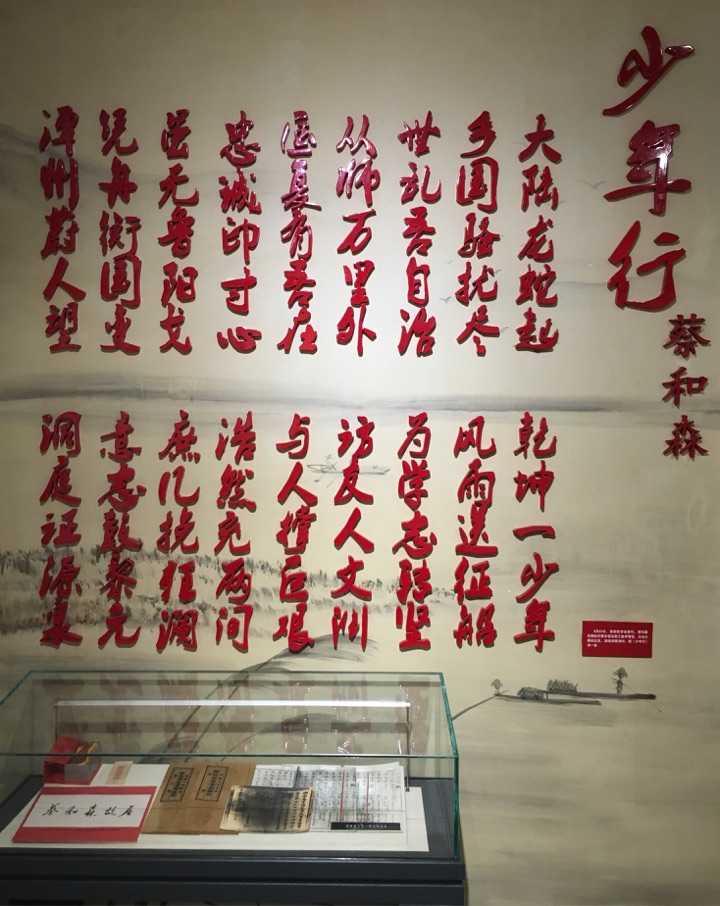 少年行
蔡和森
大陆龙蛇起
乾坤一少年
乡国骚扰尽
风雨送征船
世乱吾自治
为学志转坚
从师万里外
访友人文渊
匡复有吾在
与人撑巨艰
忠诚印寸心
浩然充两间
虽无鲁阳戈
庶几挽狂澜
凭舟衡国变
意志鼓黎元
潭州蔚人望
洞庭证源泉
蔡和森故居